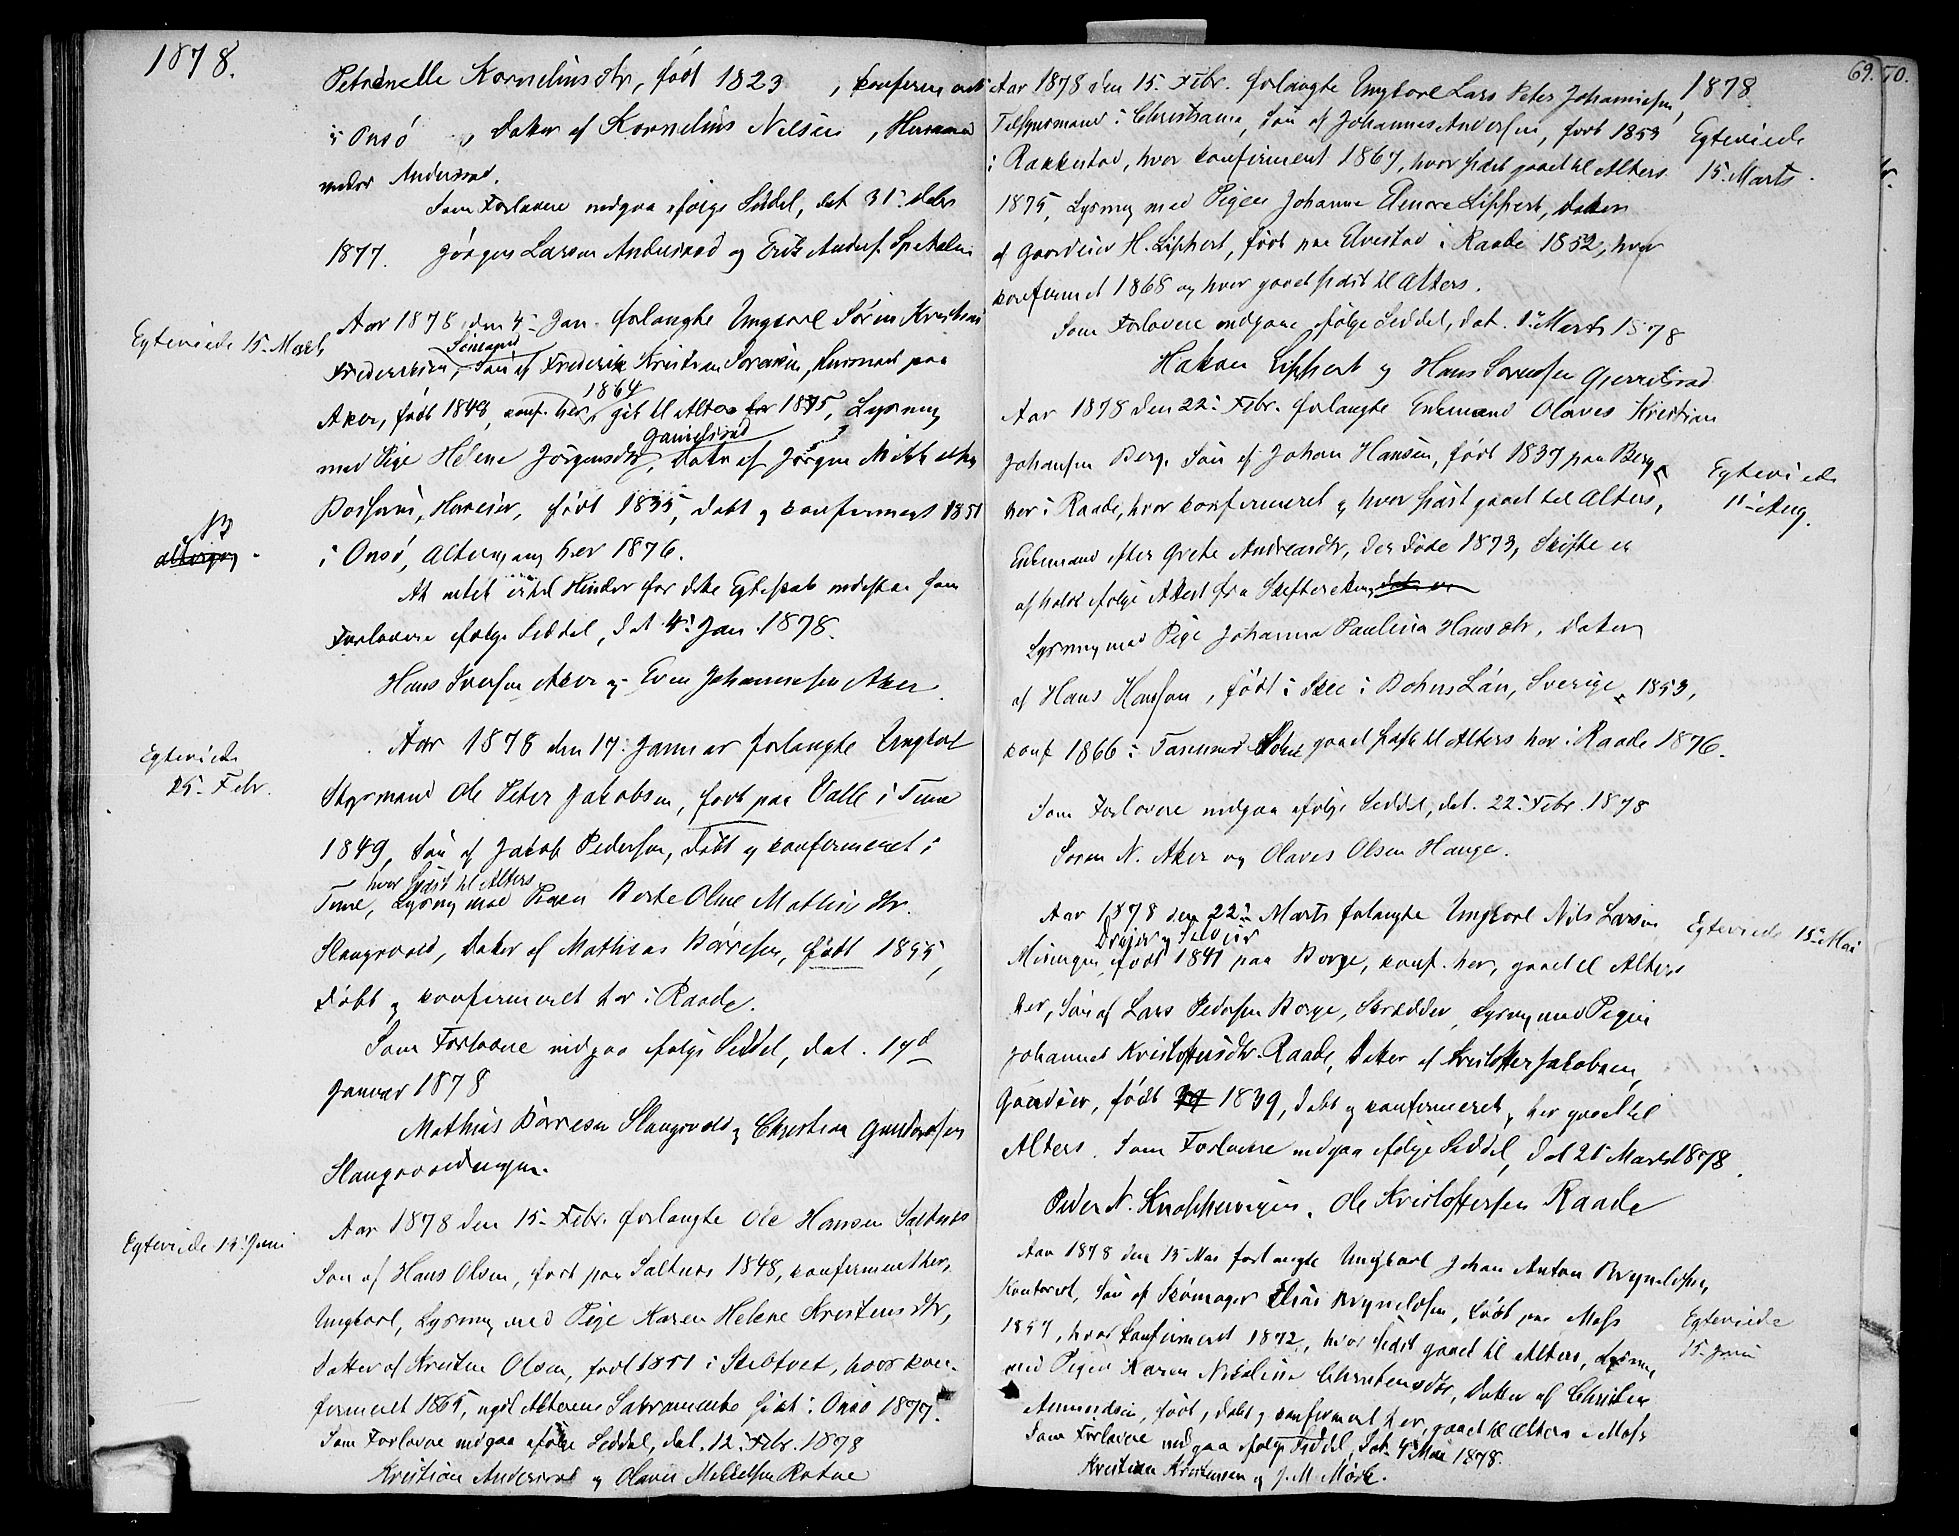 1878.
Petronelle Kornelius dtr, født 1823, konfirmeret
i Onsø, Datter af Kornelius Nilsen, Husmand
under Andersrød.
Som Forlovere nedgaa ifølge Seddel, dat 31te dets
1877. Jørgen Larsen Andersrød og Erik Anders.
Egteviede 15. Marts
Aar 1878, den 4de Jan. forlangte Ungkarl Søren Kristian
Frederiksen, Søn af Frederik Kristian Sørensen, Husmand paa
1864
Aker, født 1848, konf. her, git til Alters her 1875, Lysning
med Pige Helene Jørgensdtr, Datter af Jørgen
Huseier, født 1835, døbt og konfirmeret 1851
NB
altergang
i Onsø, Altergang her 1876.
At intet Hinder for dette Egteskab indestaa som
Forlovere ifølge Seddel, dat 4de Jan. 1878.
Hans Iversen Aker og Even Johannesen Aker.
Egteviede
25. Febr.
Aar 1878 den 17. Januar forlangte Ungkarl
Styrmand Ole Peter Jakobsen, født paa Valle i Tune
1849, Søn af Jakob Pedersen, døbt og konfirmeret i
hvor sidst til Alters
Tune, Lysning med Pigen Berte Oline Mathis dtr.
Slangsvold, Datter af Mathias Børresen, født 1855,
døbt og konfirmeret her i Raade.
Som Forlovere nedgaa ifølge Seddel, dat. 17d
Januar 1878
Mathias Børresen Slangsvold og Christian Gundersen
Slangsvoldengen.
Egteviede 14. Juni
Aar 1878 den 15. Febr. forlangte Ole Hansen Saltnes
Søn af Hans Olsen, født paa Saltnes 1848, konfirmeret her,
Ungkarl, Lysning med Pige Karen Helene Kristens dtr,
Datter af Kristen Olsen, født 1851 i Skibtvet, hvor kon-
firmeret 1865, Alterens Sakramente sidst i Onsø 1877.
Som Forlovere nedgaa ifølge Seddel, dat. 12. Febr. 1878
Kristian Andersrød og Olaves Mikkelsen
69. 70.
1878
Aar 1878 den 15. Febr. forlangte Ungkarl Lars Peter Johannesen,
i Christiania, Søn af Johannes Andersen, født 1853
Egteviede
15. Marts
i Rakkestad, hvor konfirmeret 1867, hvor sidst gaaet til Alters
1875, Lysning med Pigen Johanne Elenore Lippert, Datter
af Gaardeier H. Lippert, født paa Elvestad i Raade 1852, hvor
konfirmeret 1868 og hvor gaaet sidst til Alters.
Som Forlovere nedgaa ifølge Seddel, dat. 1. Marts 1878
Hakon Lippert og Hans Sørensen
Aar 1878 den 22. Febr. forlangte Enkemand Olaves Kristian
Johansen Berg, Søn af Johan Hansen, født 1837 paa Berg
Egteviede
11. Aug.
her i Raade, hvor konfirmeret og hvor sidst gaaet til Alters,
Enkemand efter Grete Andreasdtr, der døde 1873, Skifte er
afholdt ifølge Attest fra Skifteretten
Lysning med Pige Johanna Paulina Hans dtr, Datter
af Hans Hanson, født i Skee i Bohus Län, Sverige, 1853,
konf 1866 i Tanums Sokn gaaet sidst til Alters her i Raade 1876.
Som Forlovere nedgaa ifølge Seddel, dat. 22. Febr. 1878
Søren N. Aker og Olaves Olsen Hauge.
Aar 1878 den 22. Marts forlangte Ungkarl Nils Larsen
Egteviede 15. Mai
Misingen, født 1841 paa Borge, konf. her, gaaet til Alters
her, Søn af Lars Pedersen Borge, Skrædder, Lysning med Pigen
Johanne Kristoffersdtr. Raade, Datter af Kristoffer Jakobsen
Gaardeier, født 1839, døbt og konfirmeret, her gaaet til
Alters. Som Forlovere nedgaa ifølge Seddel, dat 21 Marts 1878.
Peder N. Knappervigen, Ole Kristoffersen Raade
Aar 1878 den 13 Mai forlangte Ungkarl Johan Anton Bryneldsen,
Kontorist, Søn af Skomager Elias Bryneldsen, født paa Moss
Egteviede
15. Juni
1857, hvor konfirmeret 1872, hvor sidst gaaet til Alters, Lysning
med Pigen Karen Nikoline Christensdtr, Datter af Christen
Amundsen, født, døbt og konfirmeret her, gaaet til Alters i Moss
Som Forlovere nedgaa ifølge Seddel, dat 4 Mai 1878.
Kristian Kristensen og J. M. Mørk.